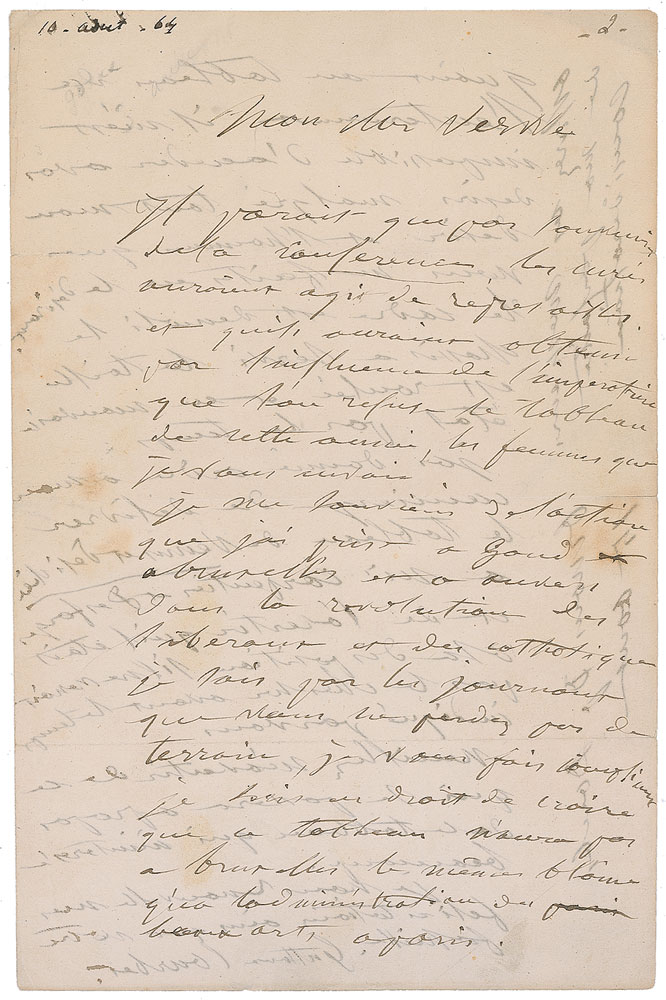 10 - aout - 64
- 2 -
Mon cher Vervée
Il parait que par souvenir
de la conference les curés
auroient agis de represailles
et quils auroient obtenu
par l'influence de l'imperatrice
que l'on refuse le tableau
de cette année, les femmes que
je vous envoie
je me souviens de l'action
que j'ai prise a Gand
a bruxelles et a anvers
dans la revolution des
liberaux et des catholiques
je sais par les journaux
que vous ne perdez pas de
terrain, je vous fais compliment
je suis en droit de croire
que ce tableau n'aura pas
a bruxelles le mêmes blâme
qu'a l'administration des paris
beaux arts a paris.